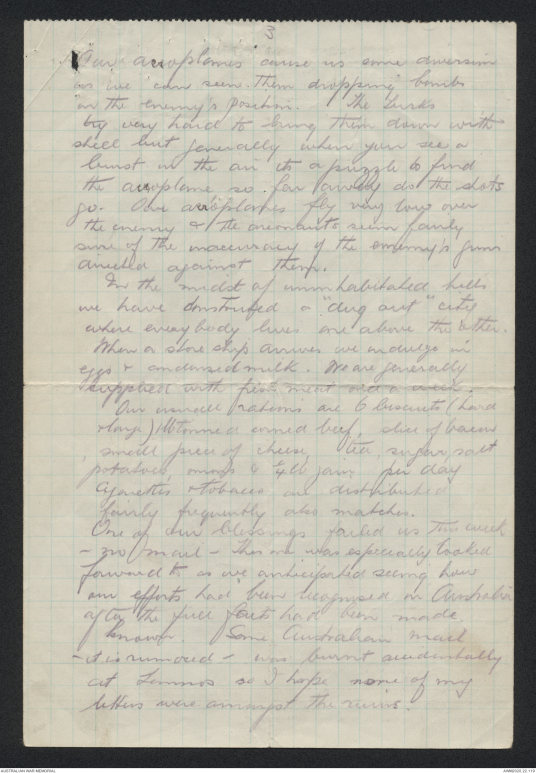 3
Our aeroplanes cause us some diversion
as we can seen them dropping bombs
in the enemy's position. The Turks
try very hard to bring them down with
shell but generally when you see a
burst in the air its a puzzle to find
the aeroplane so far away do the shots
go. Our aeroplanes fly very low over
the enemy & the aeronauts seem fairly
sure of the inaccuracy of the enemy's guns
directed against them.
In the midst of uninhabitated hills
we have constructed a "dug out" city
where everybody lives one above the other.
When a store ship arrives we indulge in
eggs & condensed milk. We are generally
supplied with fresh meat
Our usual rations are 6 biscuits (hard
& large) 1lb tinned corned beef, slice of bacon
, small piece of cheese, tea, sugar, salt
potatoes, onions & 1/4 lb jam per day
Cigarettes & tobacco are distributed
fairly frequently also matches.
One of our blessings failed us this week
- no mail - this one was especially looked
forward to as we anticipated seeing how
our efforts had been recognised in Australia
after the full facts had been made
known. Some Australian mail
- it is rumored - was burnt accidentally
at Lemnos so I hope none of my
letters were amongst the ruins.
AUSTRALIAN WAR MEMORIAL